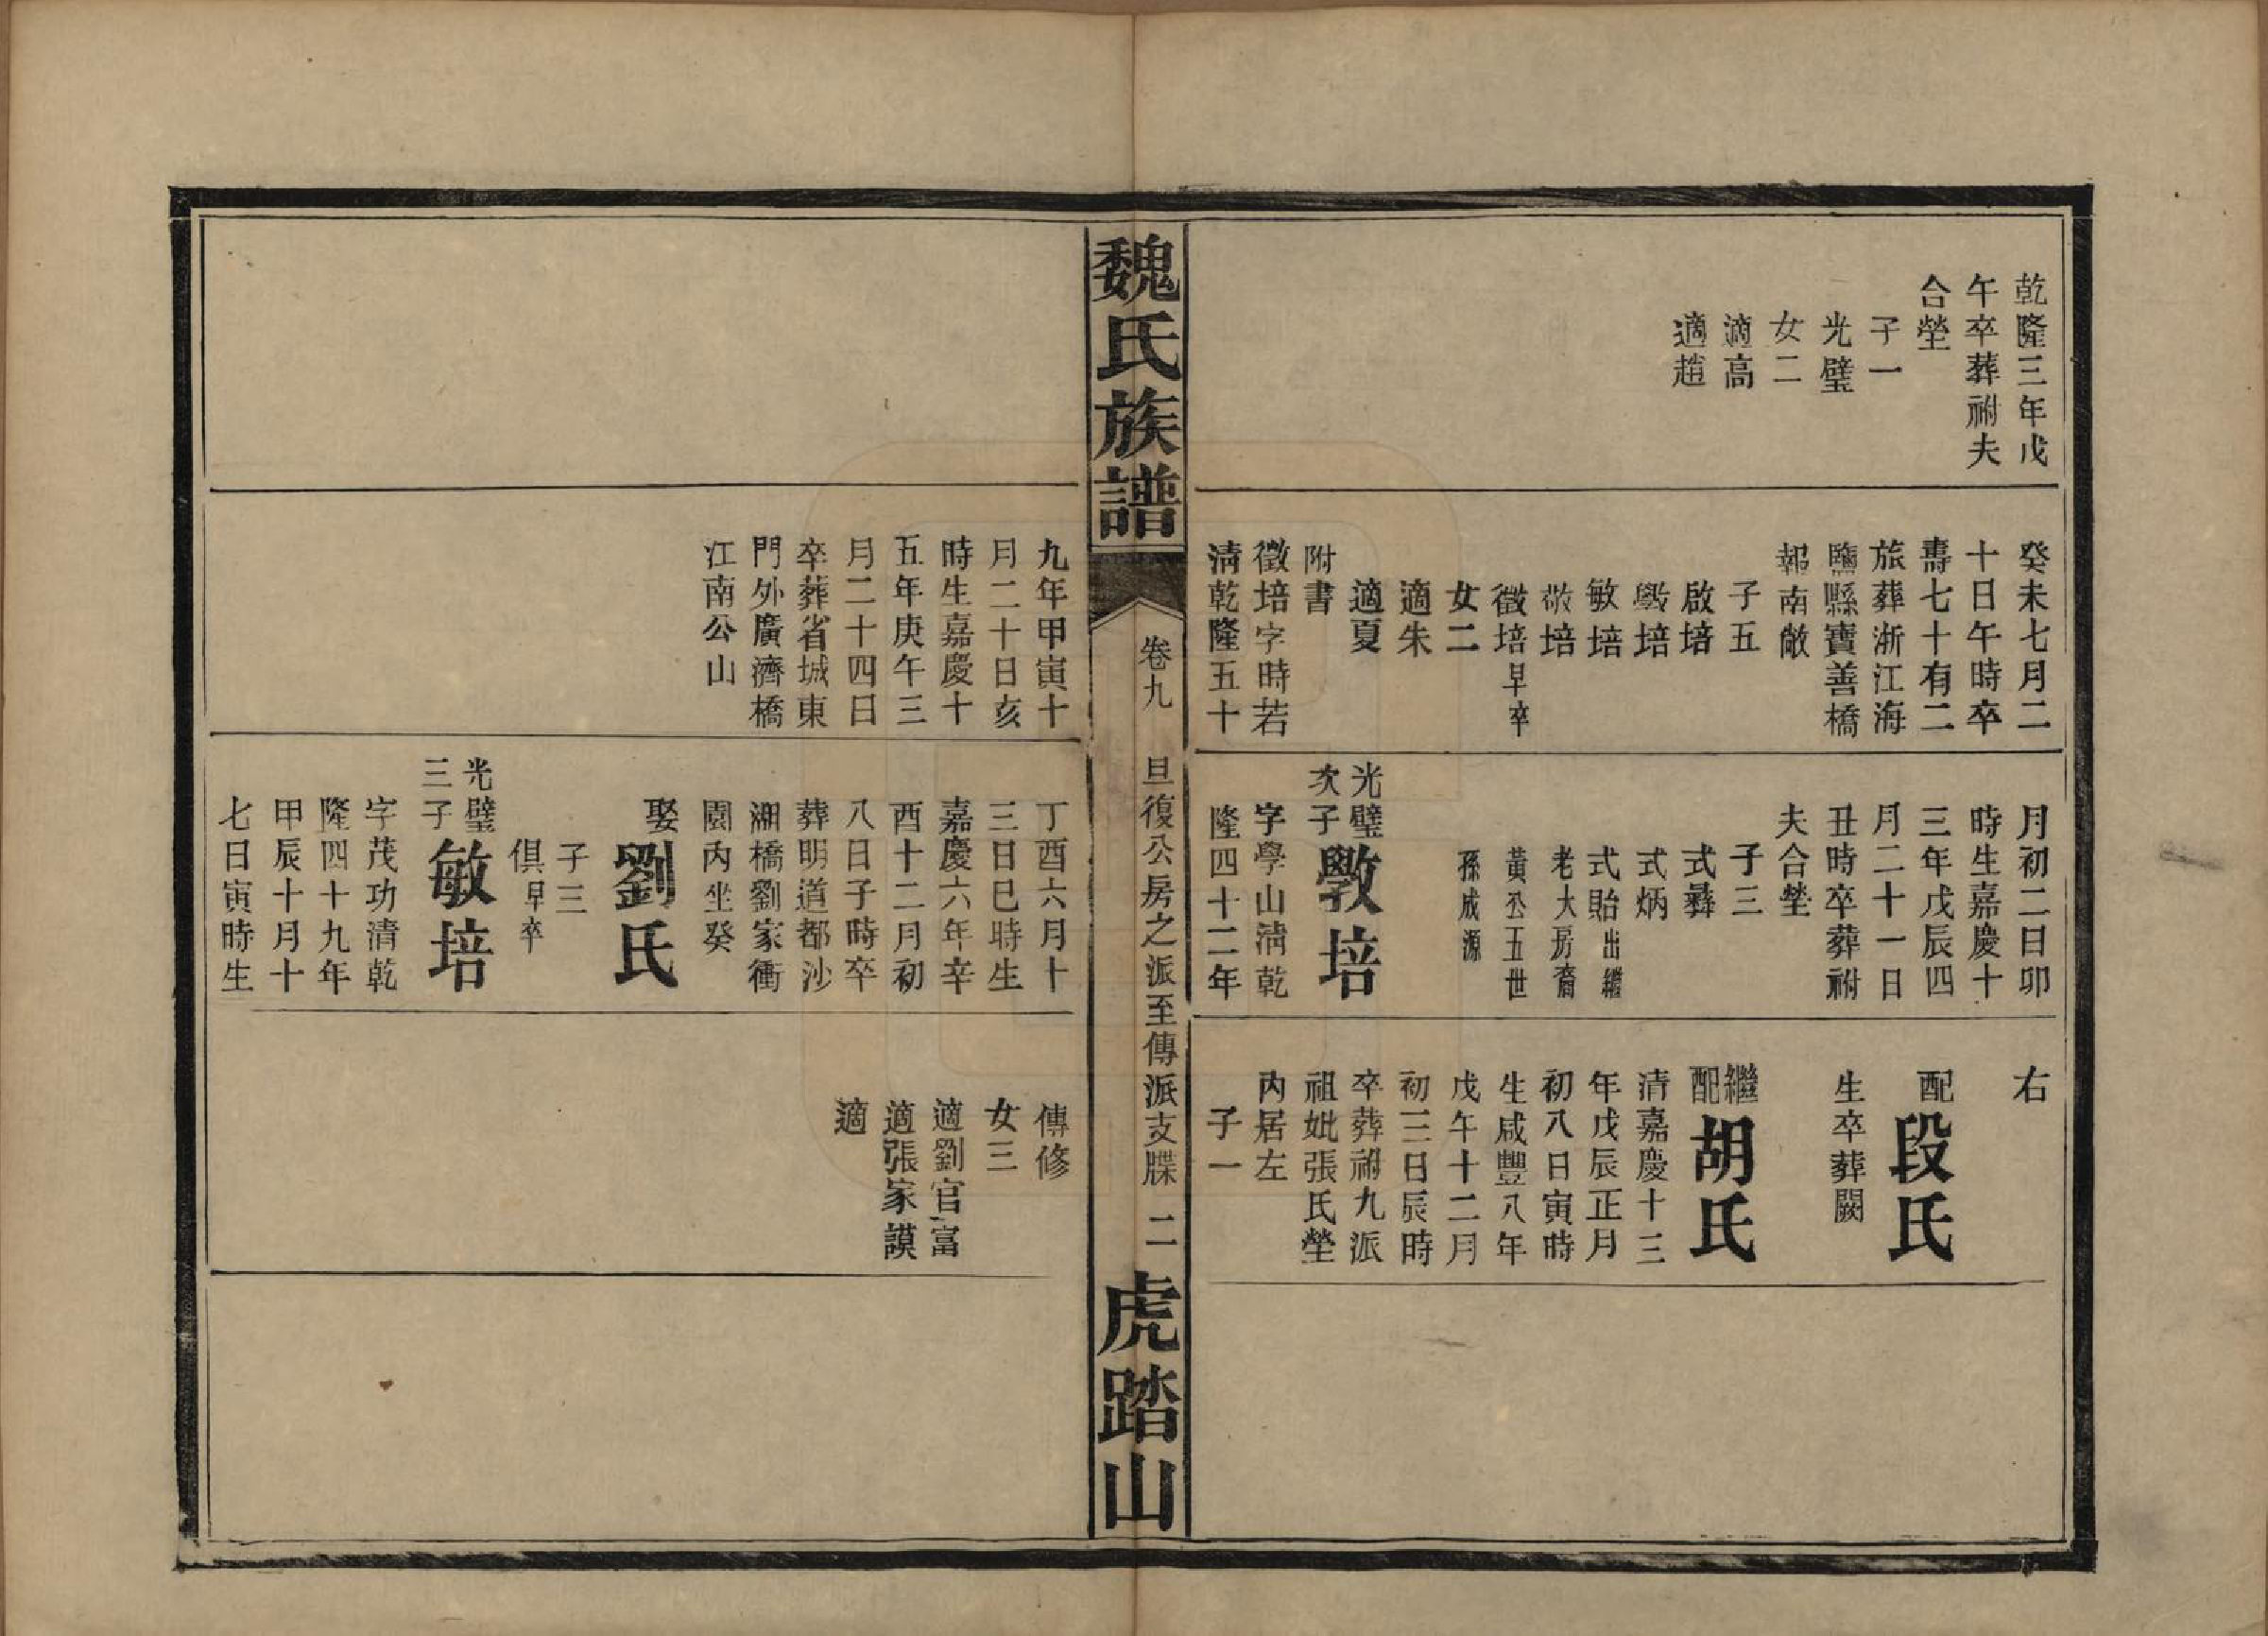 乾隆三年戊
午卒葬祔夫
合塋
子一
光璧
女二
適高
適趙
癸未七月二
十日午時卒
壽七十有二
旅葬浙江海
鹽縣寶善橋
報南敞
子五
啟培
斆培
敏培
敬培
徵培早卒
女二
適朱
適夏
附書
徵培字時若
清乾隆五十
月初二日卯
時生嘉慶十
三年戊辰四
月二十一日
丑時卒葬祔
夫合塋
子三
式彝
式炳
式貽出繼
老大房裔
黃公五世
孫成源
光璧
次子斆培
字學山清乾
隆四十二年
右
配段氏
生卒葬闕
繼配胡氏
清嘉慶十三
年戊辰正月
初八日寅時
生咸豐八年
戊午十二月
初三日辰時
卒葬祔九派
祖妣張氏塋
內居左
子一
魏氏族譜
卷九
旦復公房之派至傳派支牒
二
虎踏山
九年甲寅十
月二十日亥
時生嘉慶十
五年庚午三
月二十四日
卒葬省城東
門外廣濟橋
江南公山
丁酉六月十
三日巳時生
嘉慶六年辛
酉十二月初
八日子時卒
葬明道都沙
湖橋劉家衝
園內坐癸
娶劉氏
子三
俱早卒
光璧
三子敏培
字茂功清乾
隆四十九年
甲辰十月十
七日寅時生
傳修
女三
適劉官富
適張家謨
適